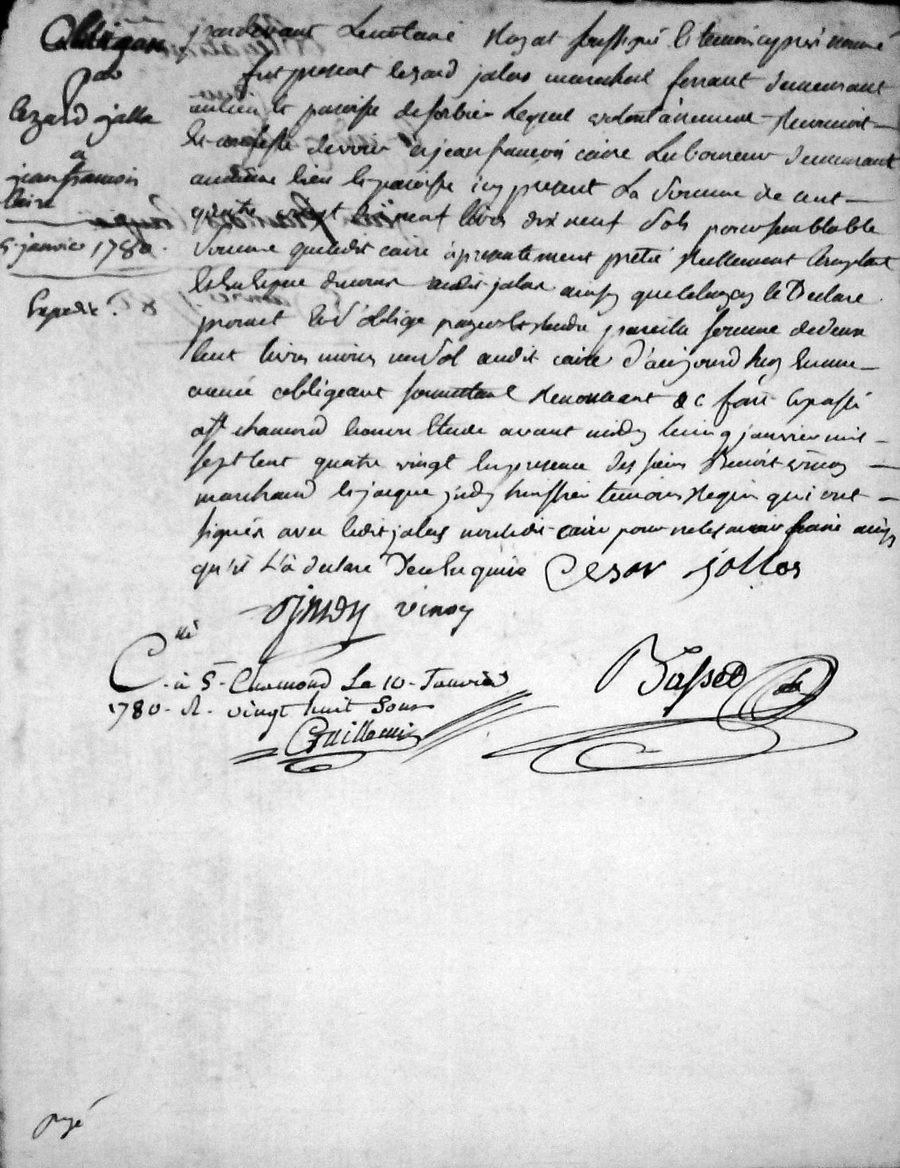 Obligaõn
par
Cezard jalla
a
jean francois
Caire
5 janvier 1780.
Expedié.
pardevant Le notaire Royal soussigné et temoins cy apres nommé
fut present Cezard jalas marechal ferrant demeurant
au lieu et paroisse de sorbier Lequel volontairement Reconnoit
et confesse devoir a jean francois caire Laboureur demeurant
au même lieu et paroisse icy present La Somme de cent
quatre vingt dix neuf livres dix neuf Sols pour semblable
Somme que ledit caire à presentement prété Reellement Comptant
et delivré audit jalas ainsy que le Declare
promet et S'oblige payer et Rendre pareille somme de deux
Cent livres moins un Sol audit caire d'aujourd'huy en une
année obligeant soumettant Renoncant &c fait et passé
a St chamond en notre Etude avant midy le cinq janvier mil
sept cent quatre vingt En presence des sieurs Benoit vinoy
marchand et jacque judy huissier temoins Requis qui ont
signés avec ledit jalas non ledit caire pour ne le savoir faire ainsy
qu'il L'à declaré De ce Enquis Cesar jallas
Jujdy vinoy
C.llé à St. Chamond Le 10. Janvier
1780. R. vingt huit Sous
Guillemin
Basset
payé